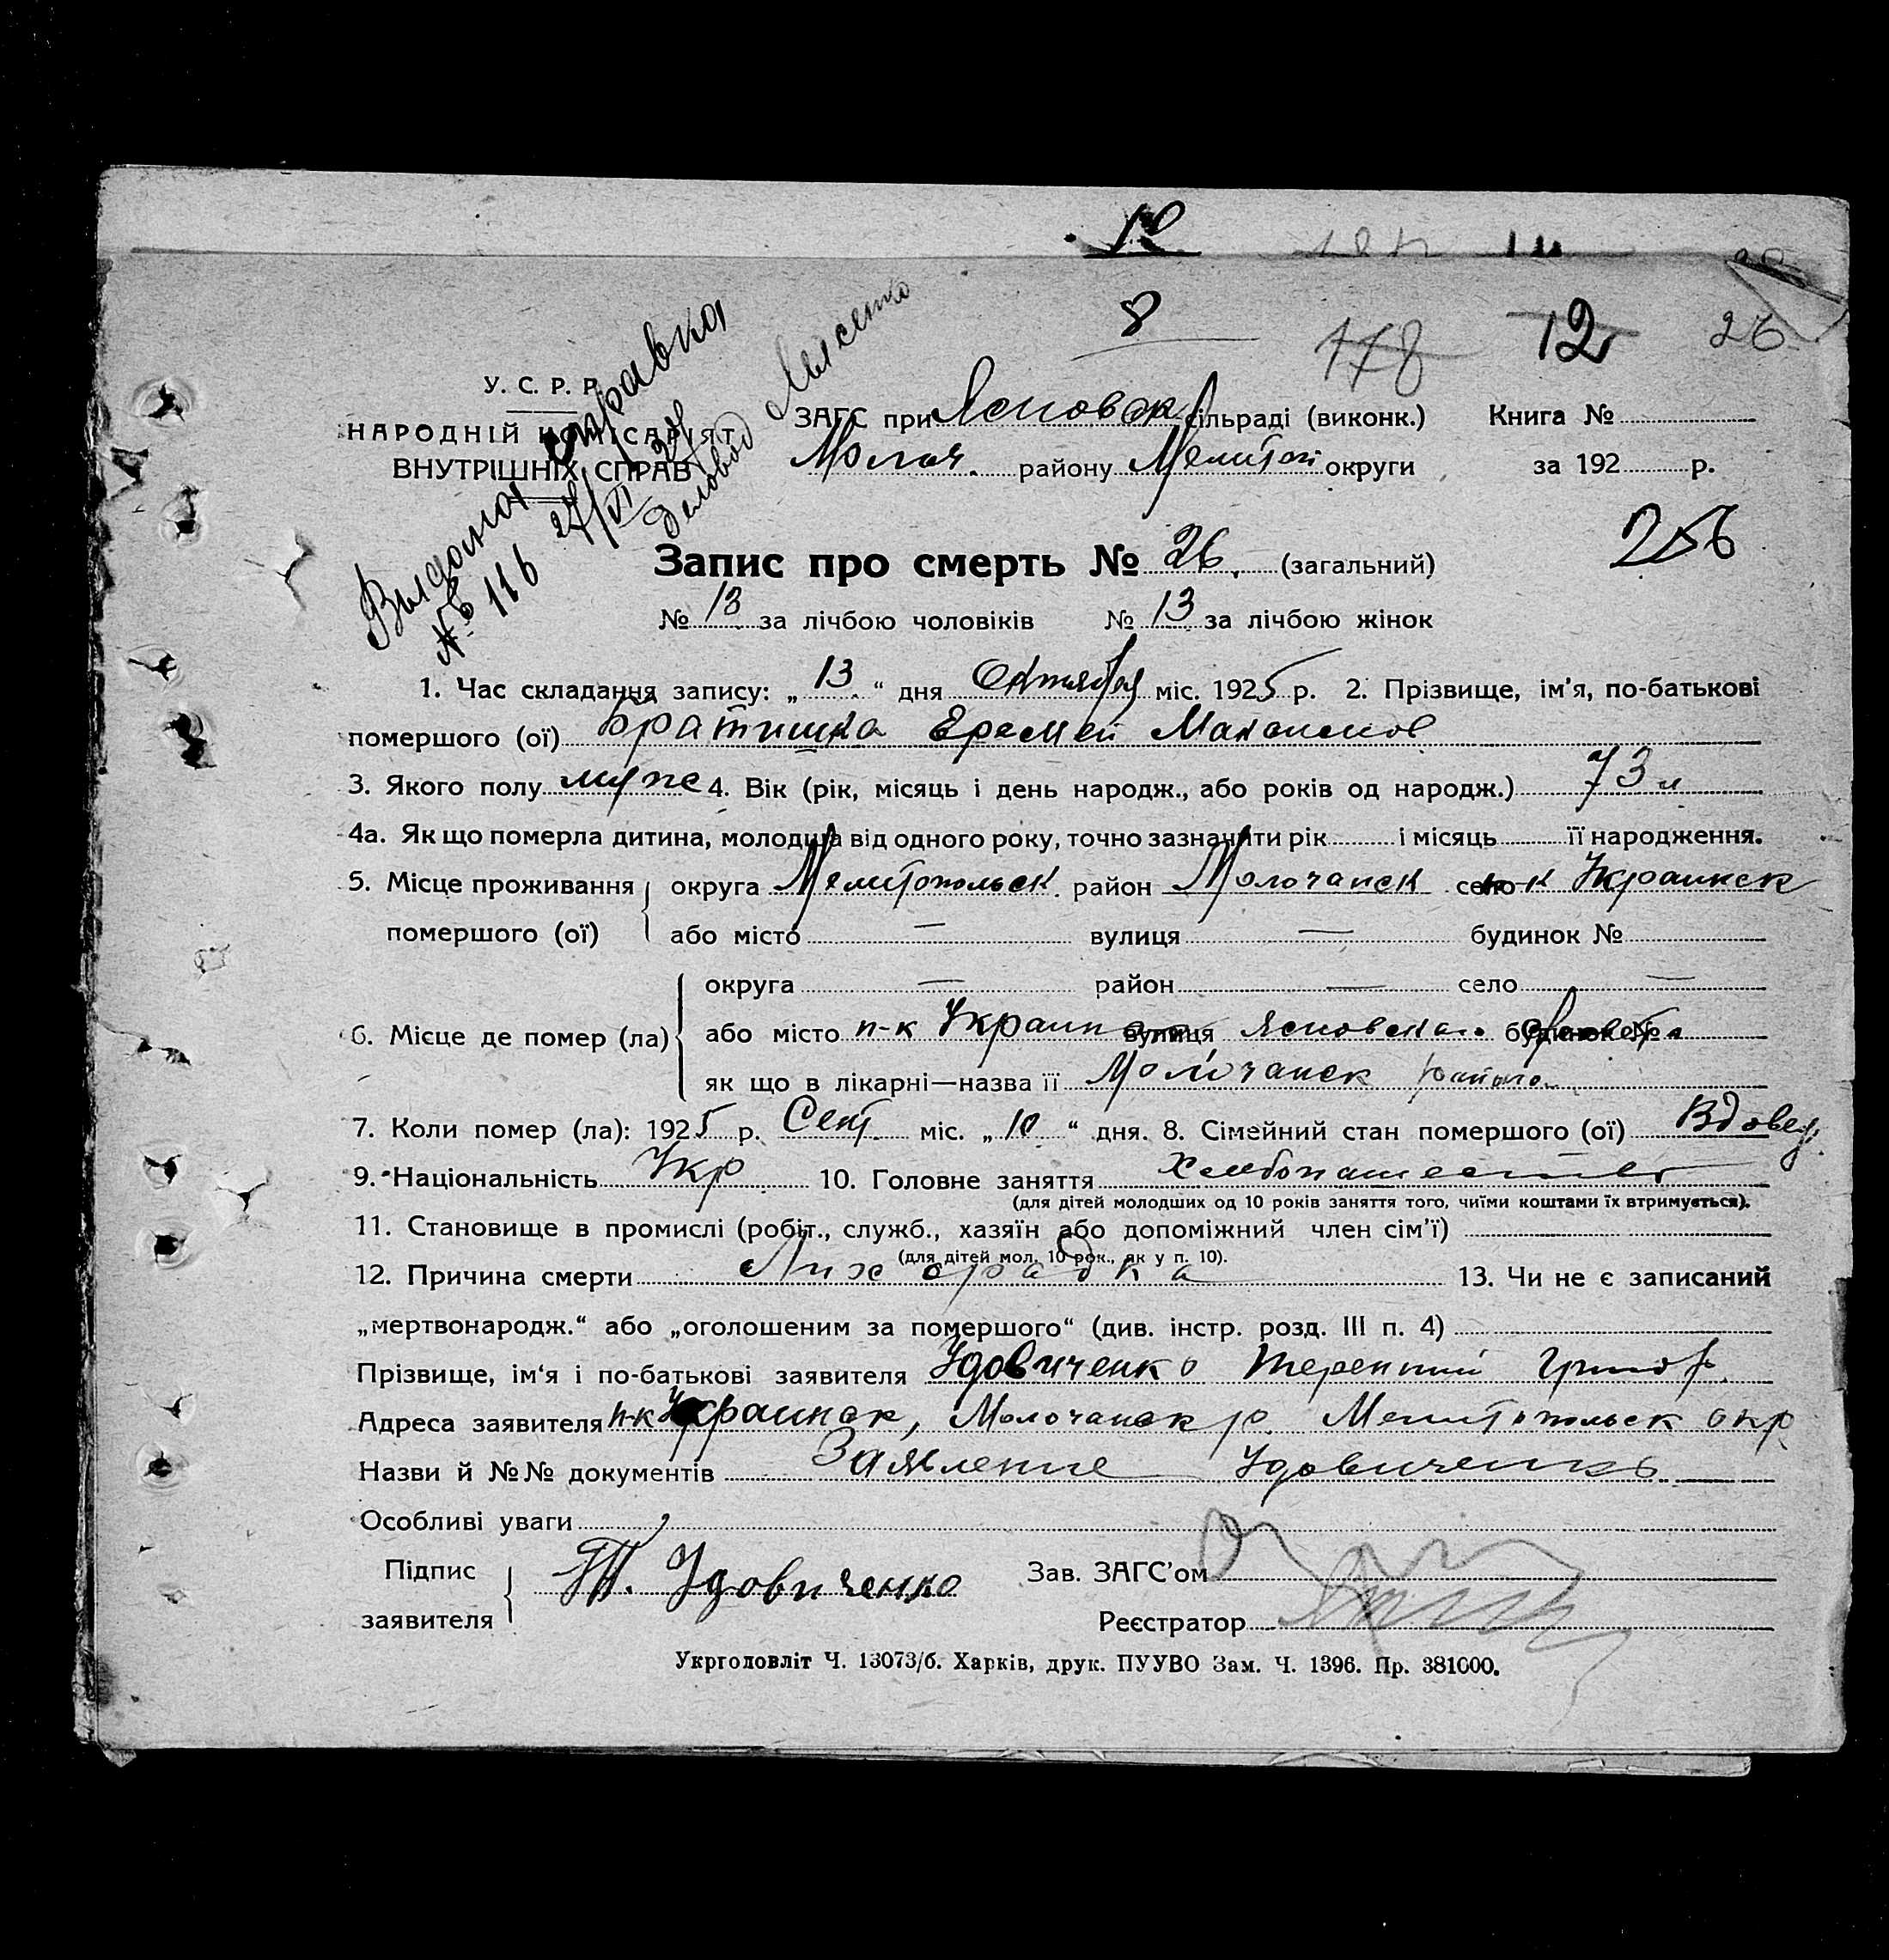 10
8 178 12 26
Выдана справка
№ 116 27/VI
Деловод
У. С. Р. Р.
НАРОДНІЙ КОМІСАРІЯТ
ВНУТРІШНІХ СПРАВ
ЗАГС при Ясновск сільраді (виконк.) Книга №
Молоч. району Мелитоп округи за 192 р.
256
Запис про смерть № 26. (загальний)
№ 13 за лічбою чоловіків № 13 за лічбою жінок
1. Час складання запису: „ 13 “ дня Октября міс. 1925 р. 2. Прізвище, ім’я, по-батькові
помершого (ої) Братишка Еремей Максимов
3. Якого полу муж 4. Вік (рік, місяць і день народж., або років од народж.) 73 л
4а. Як що померла дитина, молодша від одного року, точно зазначити рік і місяць її народження.
5. Місце проживання округа Мелитопольск район Молочанск село п-к Украинск
помершого (ої) або місто — вулиця — будинок №
округа — район — село —
6. Місце де помер (ла) або місто п-к Украинск вулиця Ясновская будинок №
як що в лікарні—назва її Молочанск района
7. Коли помер (ла): 1925 р. Сент. міс. „ 10 “ дня. 8. Сімейний стан помершого (ої) Вдовец
9. Національність Укр 10. Головне заняття Хлебопашество
(для дітей молодших од 10 років заняття того, чиїми коштами їх втримується).
11. Становище в промислі (робіт., служб., хазяїн або допоміжний член сім’ї)
(для дітей мол. 10 рок., як у п. 10).
12. Причина смерти Лихорадка 13. Чи не є записаний
„мертвонародж.“ або „оголошеним за помершого“ (див. інстр. розд. III п. 4)
Прізвище, ім‘я і по-батькові заявителя Удовиченко Терентий Григор.
Адреса заявителя п-к Украинск, Молочанск р. Мелитопольск окр
Назви й №№ документів Заявление Удовиченко
Особливі уваги
Підпис заявителя Т. Удовиченко Зав. ЗАГС’ом
Реєстратор
Укрголовліт Ч. 13073/б. Харків, друк. ПУУВО Зам. Ч. 1396. Пр. 381000.